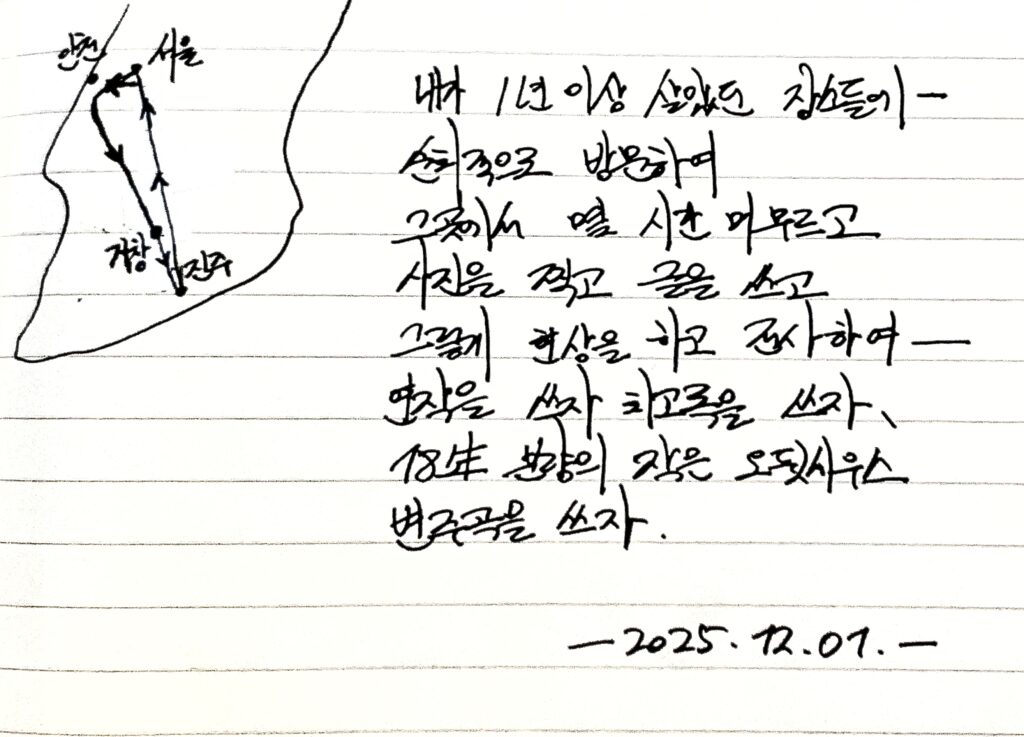 안전 서울
거창
진주
내가 1년 이상 살았던 장소들에 —
순회적으로 방문하여
그곳에서 몇 시간 머무르고
사진을 찍고 글을 쓰고
그렇게 현상을 하고 전사하여 —
연작을 쓰자 회고록을 쓰자、
18年 분량의 작은 오뒷사우스
변주곡을 쓰자.
— 2025. 12. 01. —